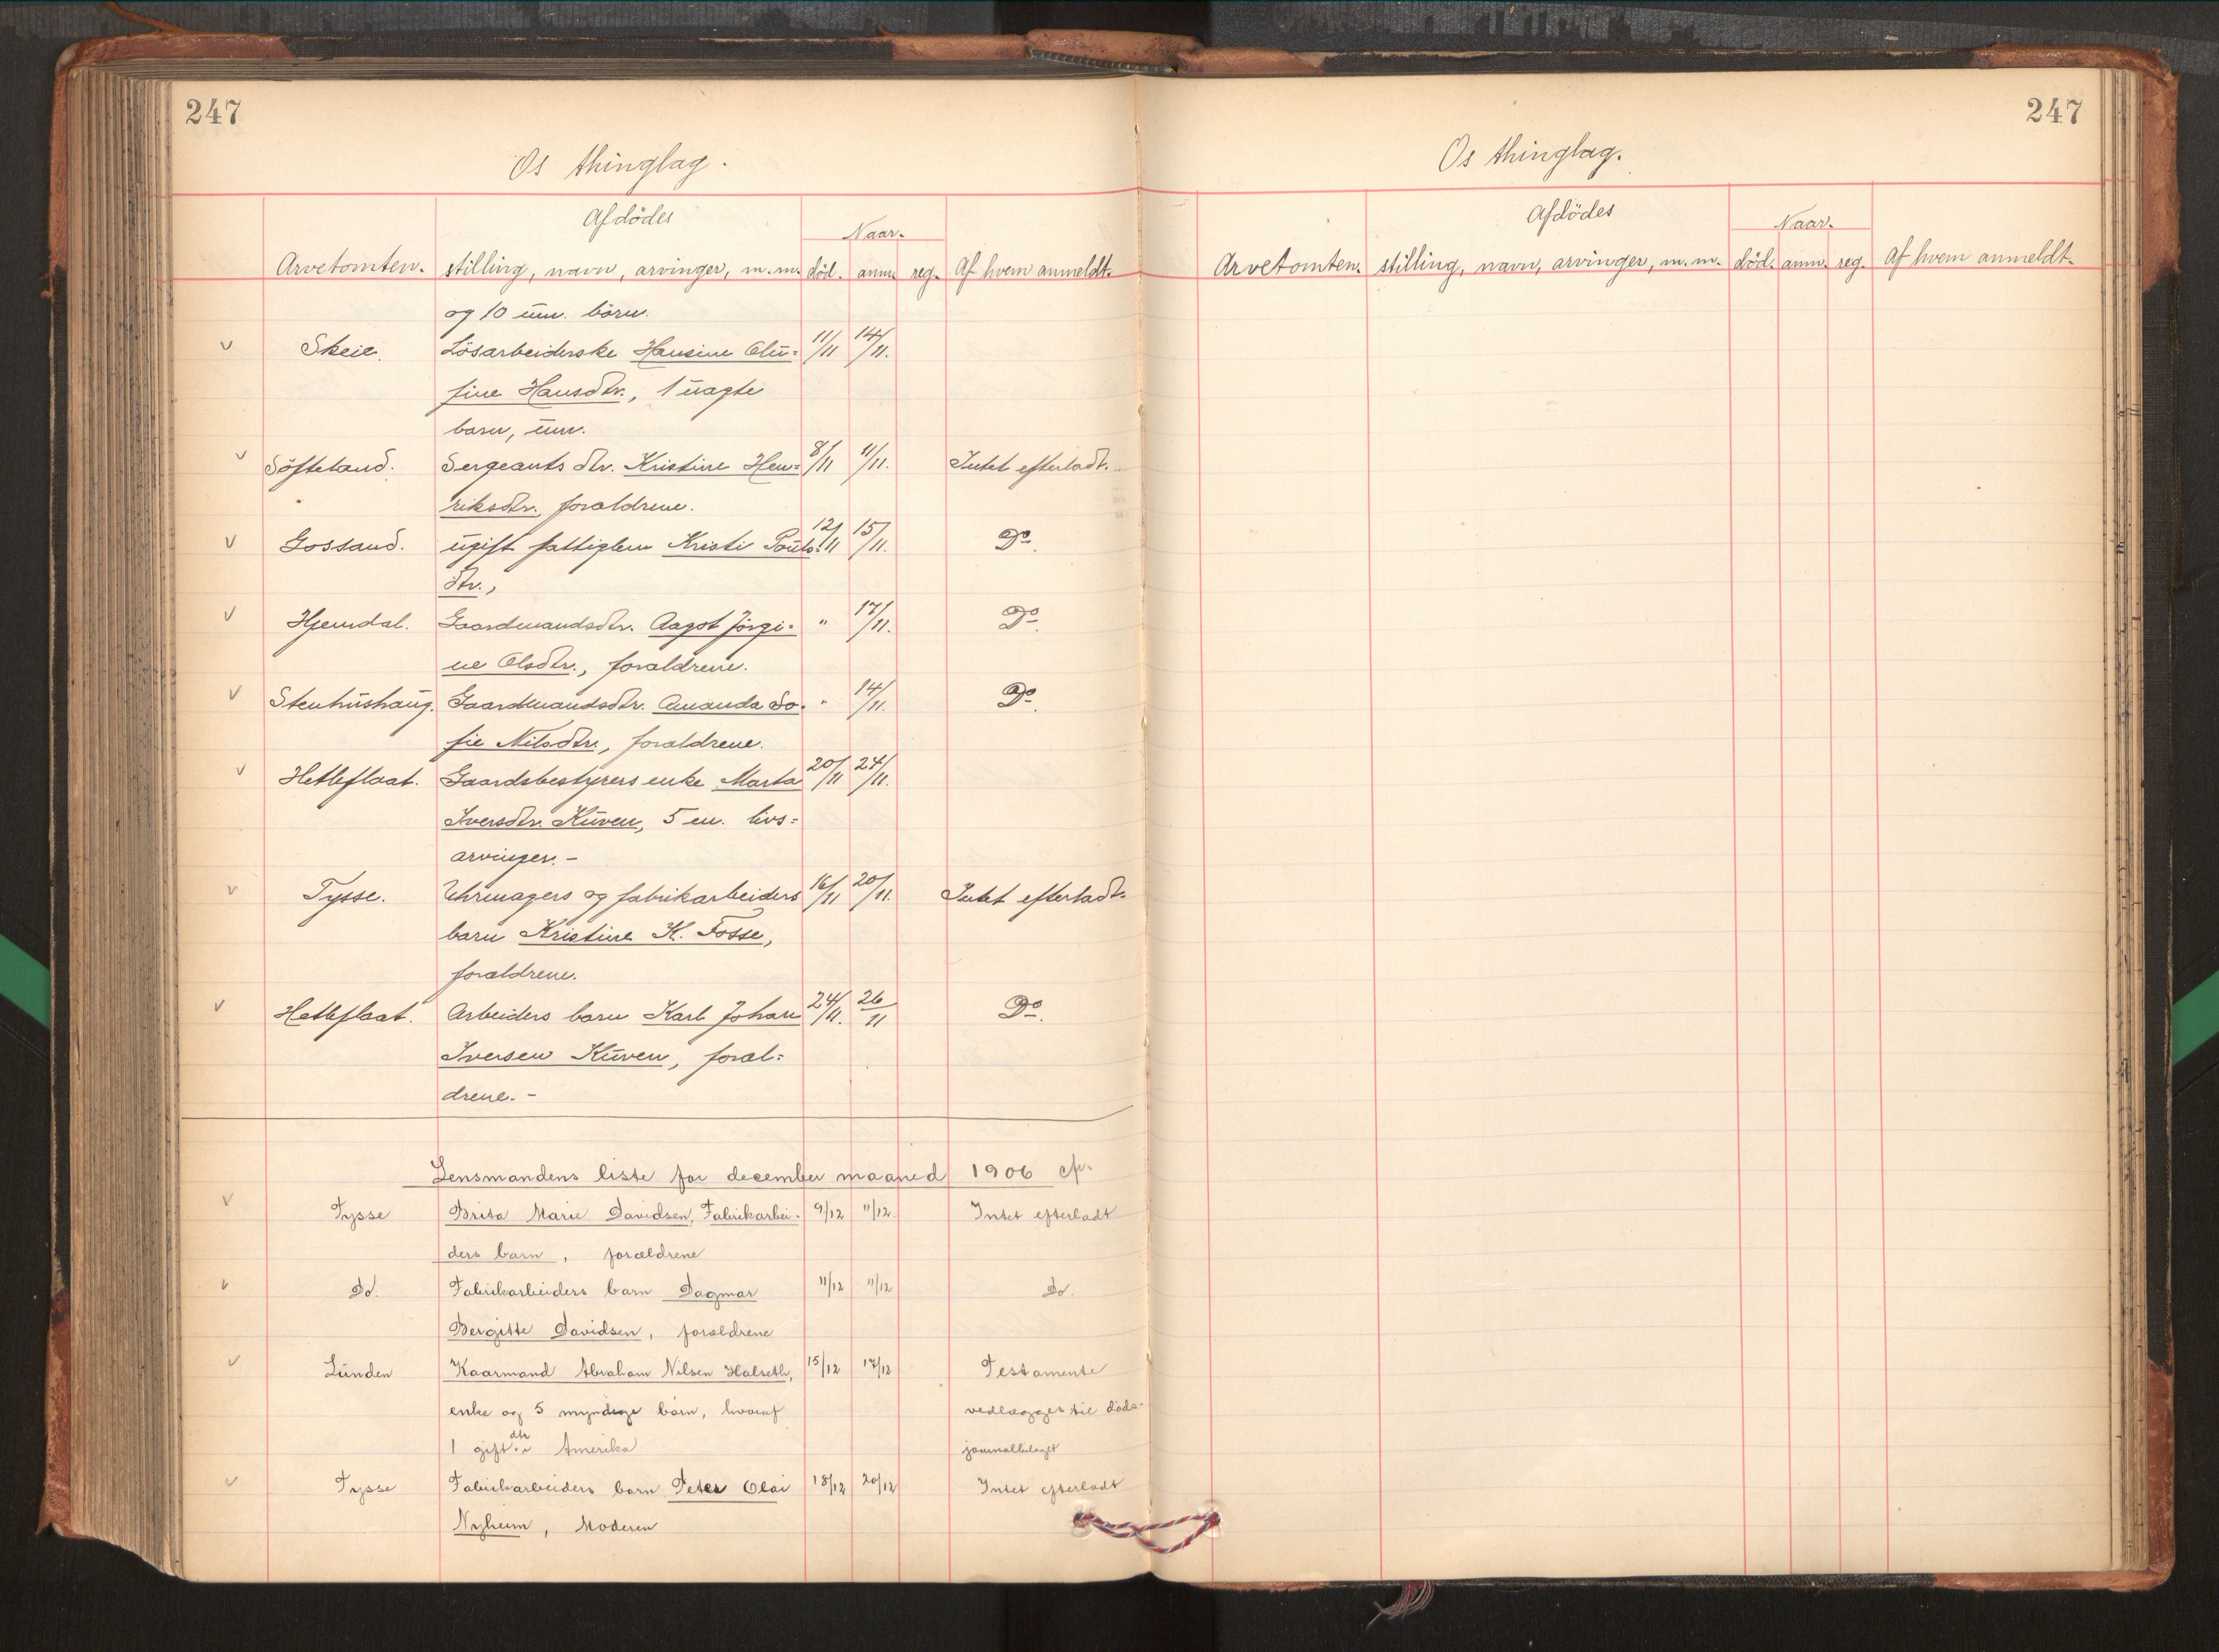 247
Os thinglag.
Afdödes
Naar.
Arvetomten. stilling, navn, arvinger, m.m. död. anm. reg. Af hvem anmeldt.
og 10 um. börn.
v Skeie. Lösarbeiderske Hansine Olu= 11/11 14/11.
fine Hansdtr., 1 uægte
barn, um.
v Söfteland. Sergeants dtr. Kristine Hen= 8/11 11/11. Intet efterladt.
riksdtr., forældrene.
v Gossand. ugift fattiglem Kristi Pouls= 12/11 15/11. Do.
dtr.,
v Hjemdal. Gaardmandsdtr. Aagot Jörgi= " 17/11. Do.
ne Olsdtr., forældrene.
v Stenhüshaüg. Gaardmandsdtr. Amanda So= " 14/11. Do.
fie Nilsdtr., forældrene.
v Hetleflaat. Gaardsbestyrers enke Marta 20/11 24/11.
Iversdtr. Küven, 5 m. livs=
arvinger. -
v Tysse. Uhrmagers og fabrikarbeiders 16/11 20/11. Intet efterladt.
barn Kristine K. Fosse,
forældrene.
v Hetleflaat. Arbeiders barn Karl Johan 24/11. 26/11 Do.
Iversen Küven, foræl=
drene. -
Lensmandens liste for december maaned 1906
v Tysse Brita Marie Davidsen, Fabrikarbei- 9/12 11/12. Intet efterladt
ders barn, forældrene
v Do. Fabrikarbeiders barn Dagmar 11/12 11/12 Do.
Bergitte Davidsen, forældrene
v Lunden Kaarmand Abraham Nilsen Halseth, 15/12 17/12 Testamente
enke og 5 myndige börn, hvoraf vedlægges til döds-
1 gift dtr i Amerika journalbilaget
v Tysse Fabrikarbeiders barn Peter Olai 18/12 20/12 Intet efterladt
Nyheim, Moderen
247
Os thinglag.
Afdödes
Naar.
Arvetomten. stilling, navn, arvinger, m.m. död. anm. reg. Af hvem anmeldt.